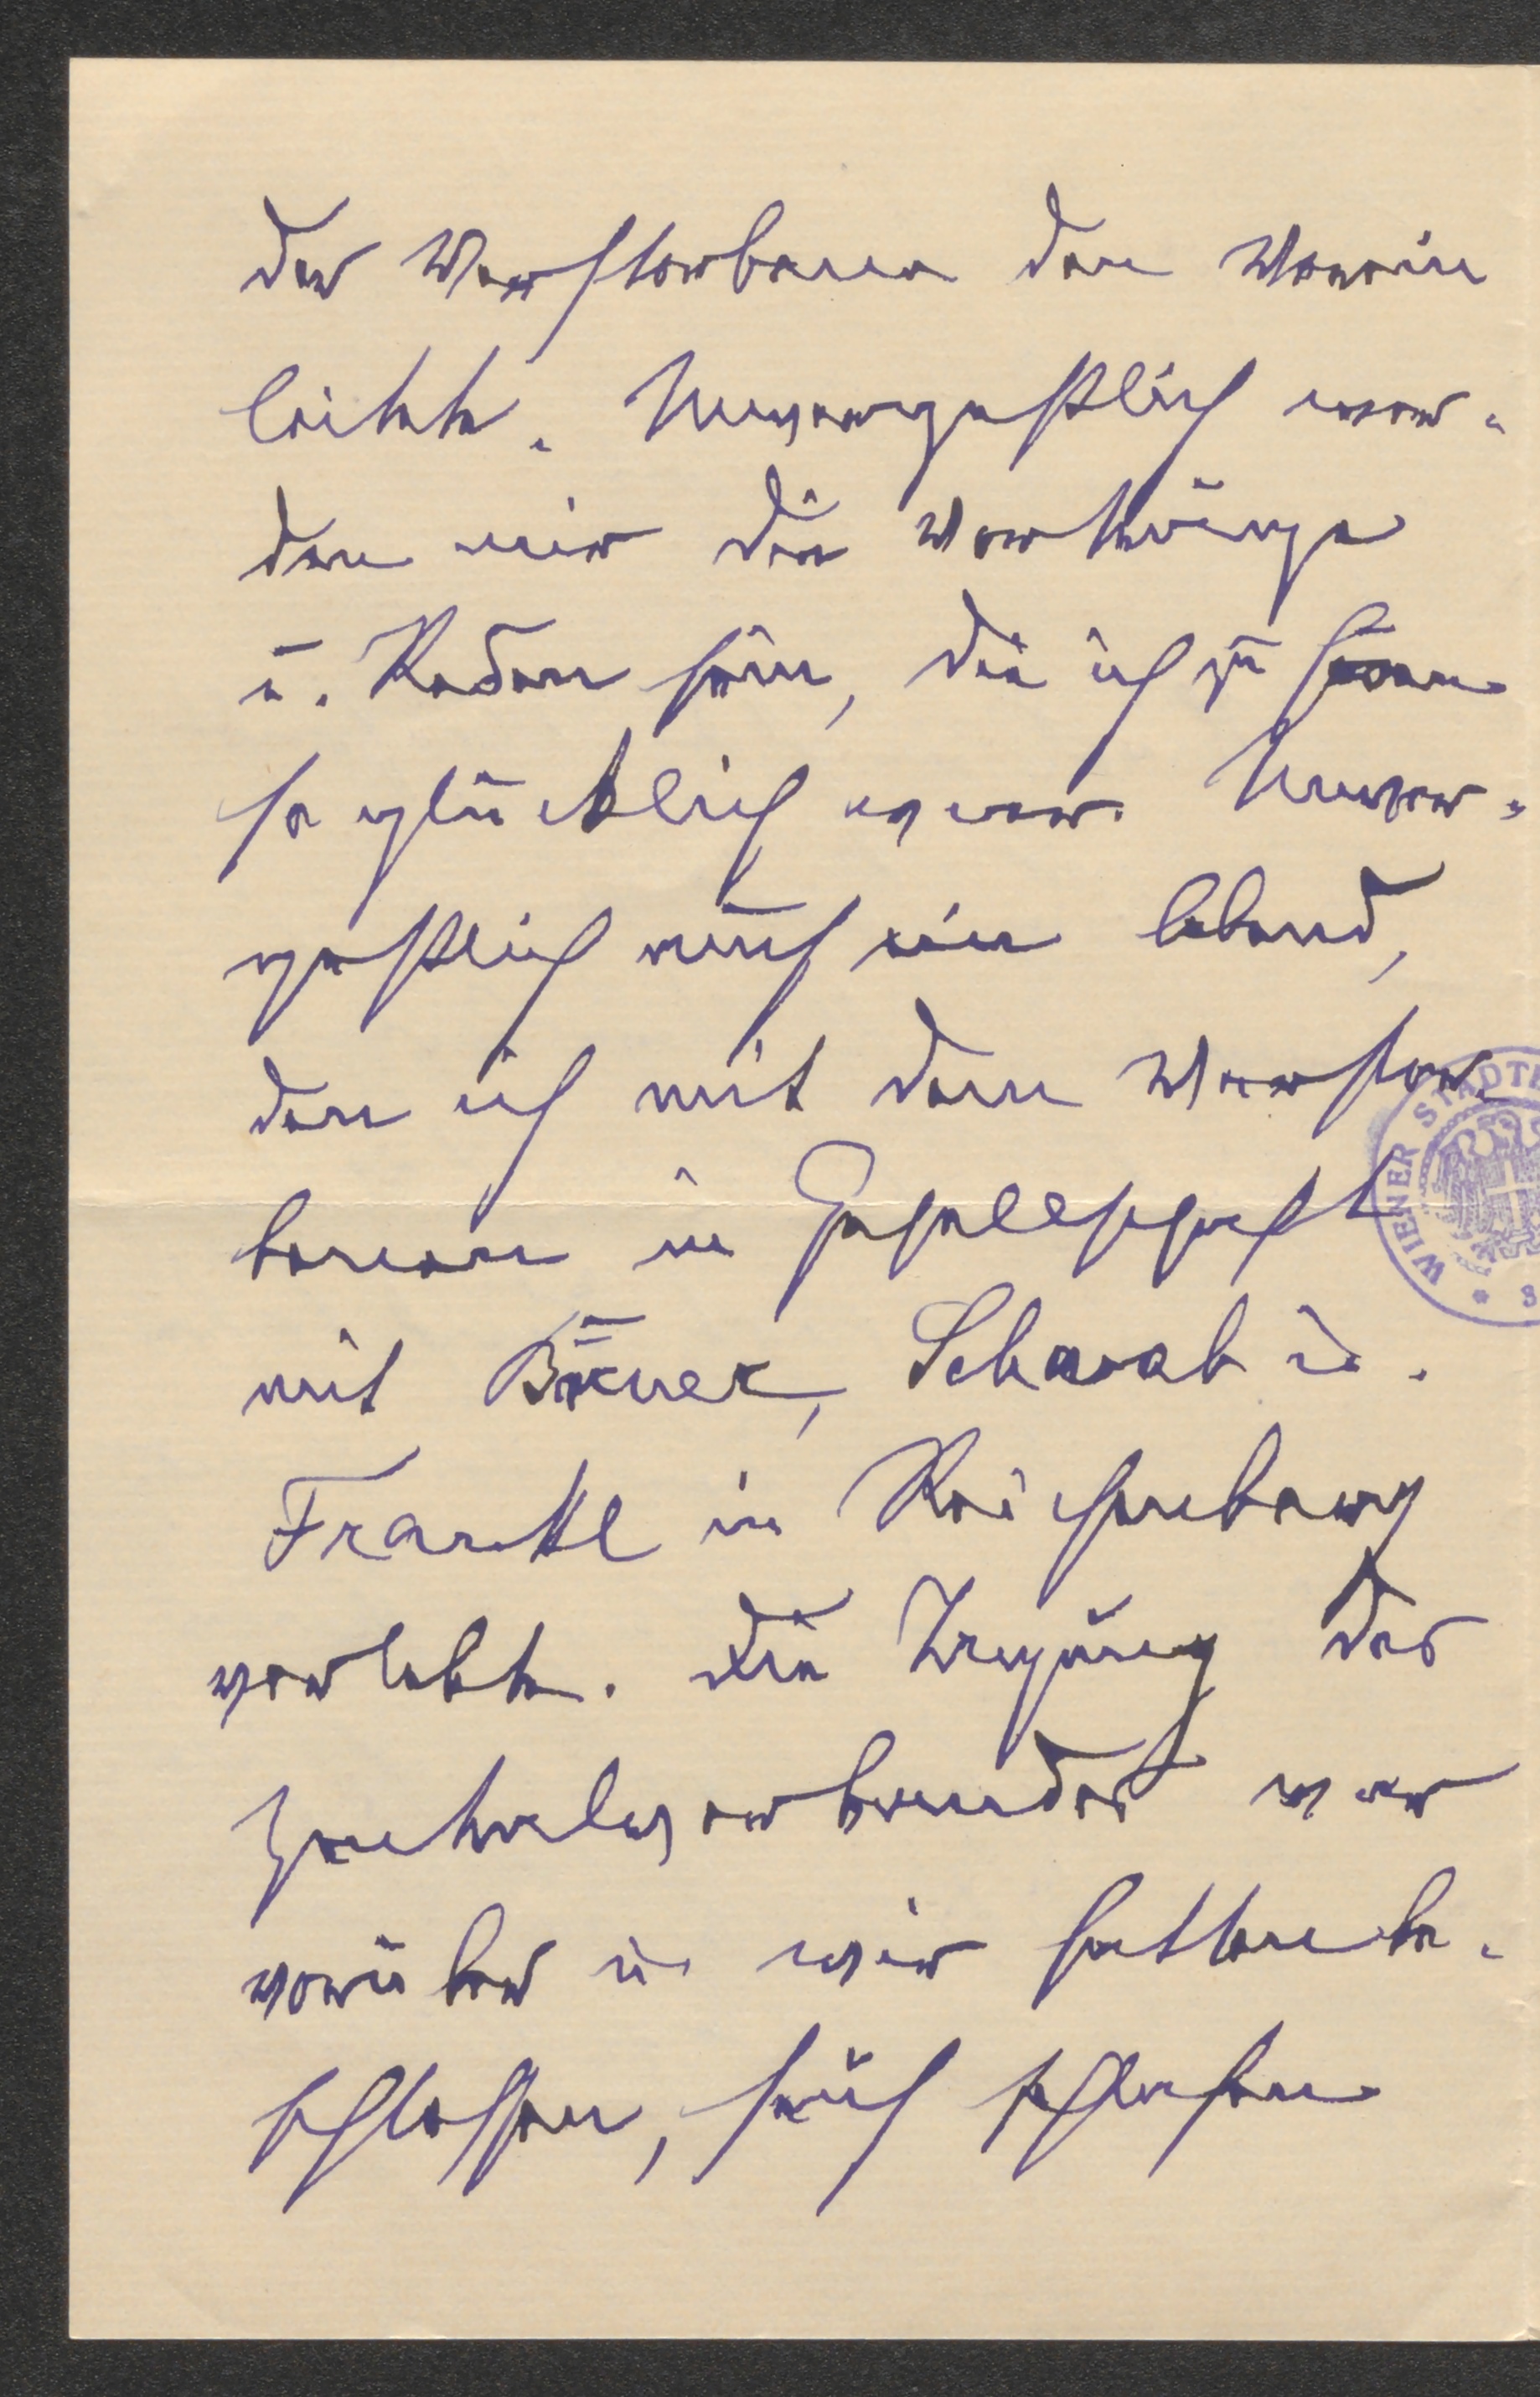 der Verstorbene den Verein
leitete. Unvergeßlich wer-
den mir die Vorträge
u. Reden sein, die ich zu hören
so glücklich war. Unver-
geßlich auch ein Abend,
den ich mit dem Verstor-
benen in Gesellschaft
mit Schwab u.
Frankl in Reichenberg
verlebte. Die Tagung des
Zentralverbandes war
vorüber u. wir hatten be-
schlossen, früh schlafen
WIENER STADT